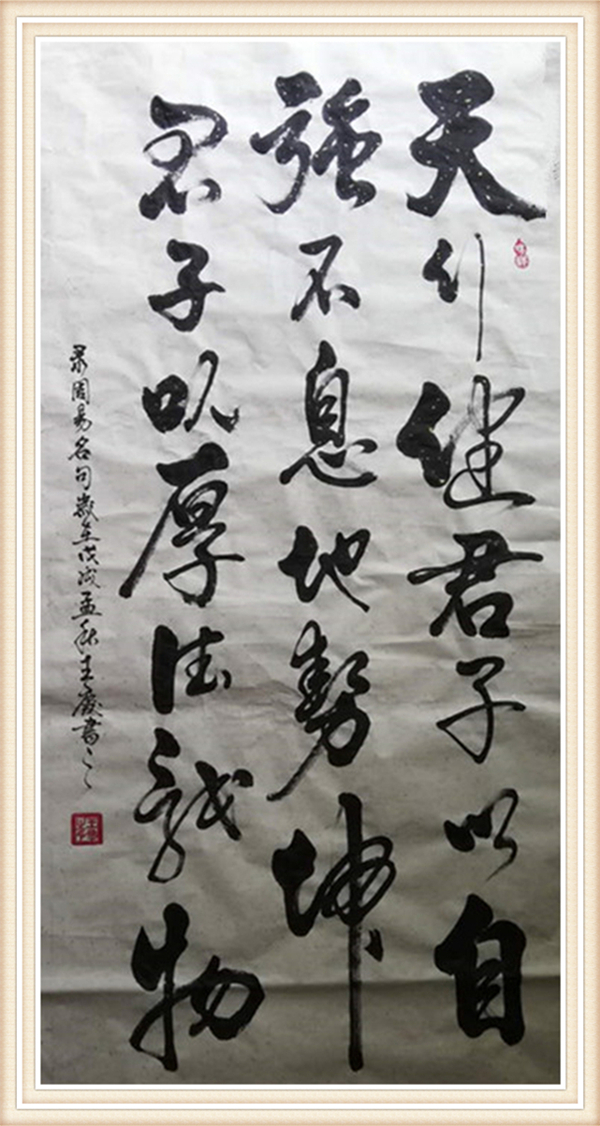 天行健君子以自
強不息地勢坤
君子以厚德載物
录周易名句歲在戊戌孟秋王慶書